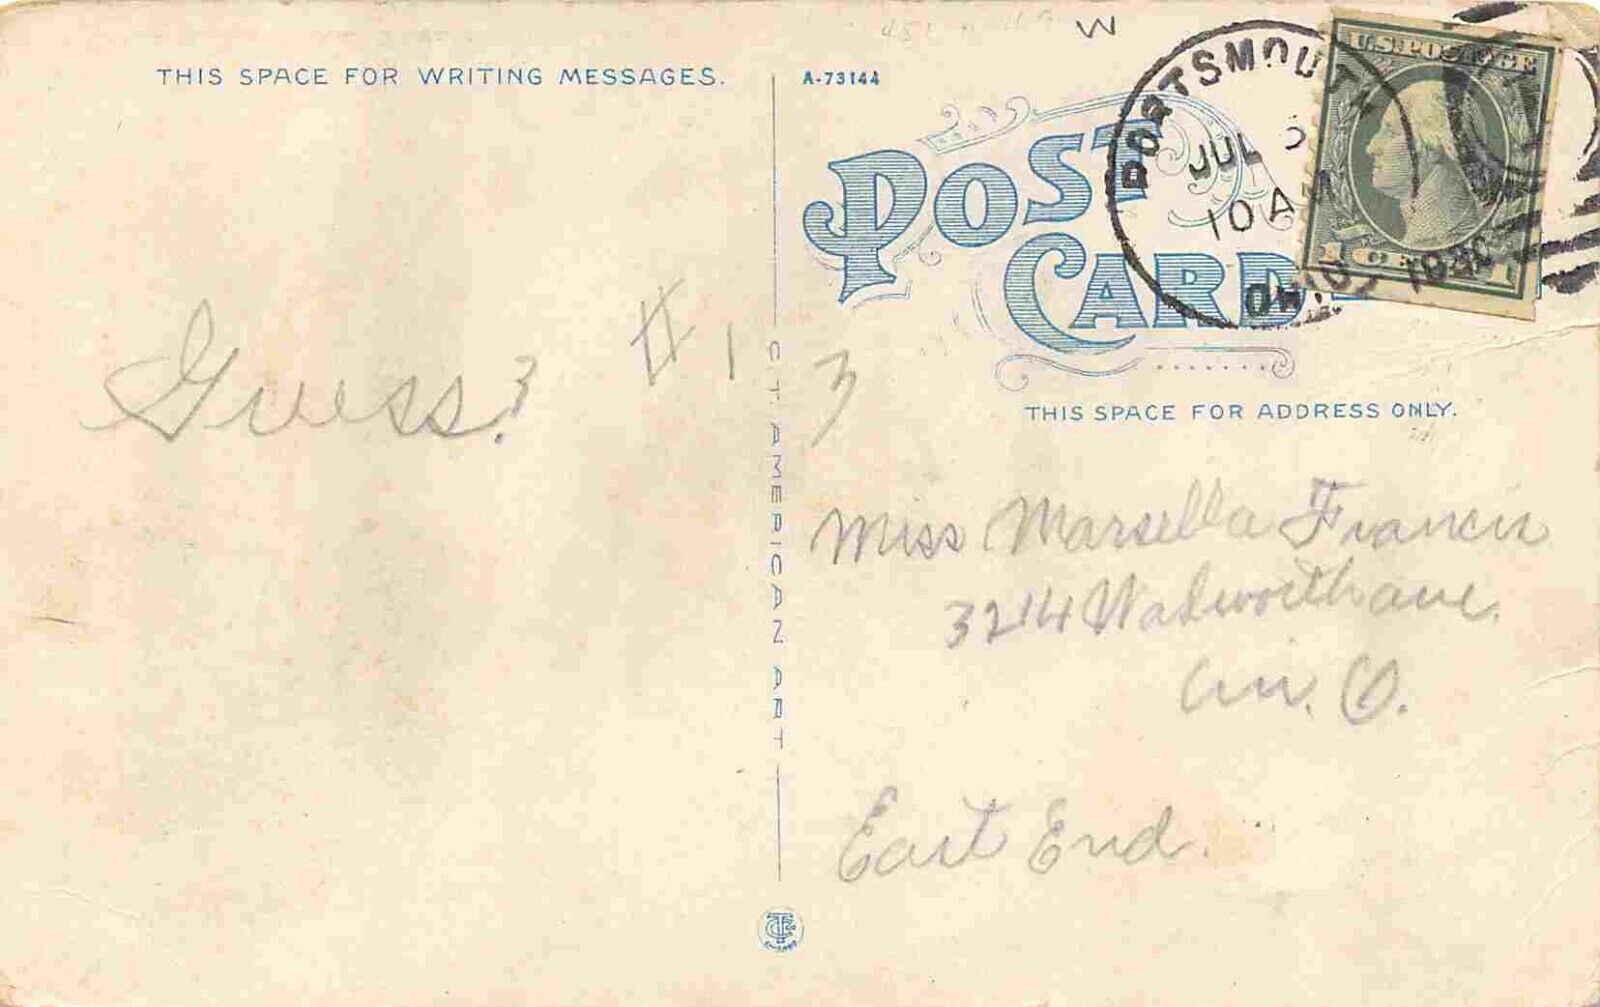 W
THIS SPACE FOR WRITING MESSAGES.
A-73144
POST CARD
PORTSMOUTH
JUL
10 AM
OHIO
U.S. POSTAGE
1 CENT 1
Guess? #13
THIS SPACE FOR ADDRESS ONLY.
C.T. AMERICAN ART
Miss Marsella Francis
3214 Walworth ave.
Cin. O.
East End.